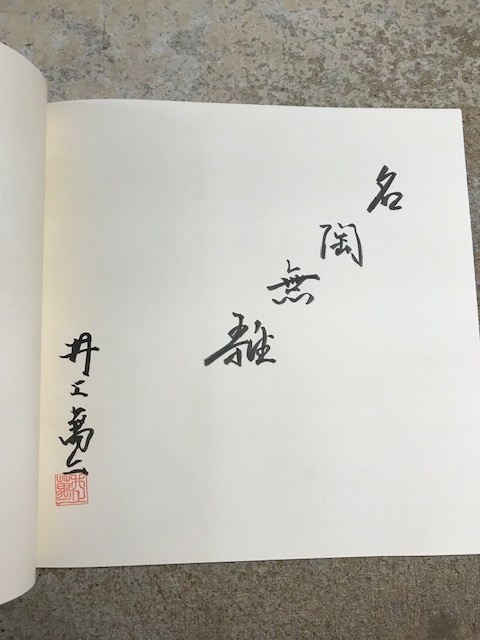 名陶無雑
井上萬二